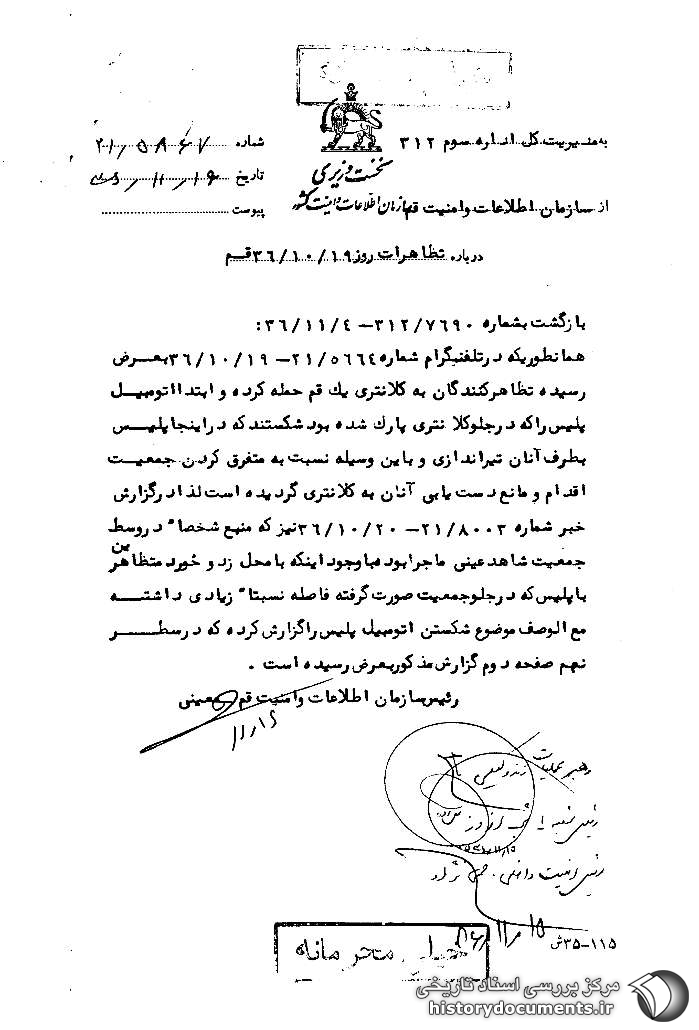 به مدیریت کل اداره سوم ۳۱۲
شماره ۲۱/۵۸۶۷
نخست وزیری
تاریخ
از سازمان اطلاعات وامنیت قم
سازمان اطلاعات و امنیت کشور
پیوست
درباره تظاهرات روز ۳۶/۱۰/۱۹ قم
بازگشت بشماره ۳۱۲/۷۶۹۰ – ۳۶/۱۱/۴ :
همانطوریکه درتلفنگرام شماره ۲۱/۵۶۶۴ – ۳۶/۱۰/۱۹ بعرض
رسیده تظاهرکنندگان به کلانتری یك قم حمله کرده و ابتدا اتومبیل
پلیس راکه درجلوکلانتری پارك شده بود شکستند که دراینجا پلیس
بطرف آنان تیراندازی و باین وسیله نسبت به متفرق کردن جمعیت
اقدام و مانع دست یابی آنان به کلانتری گردیده است لذا درگزارش
خبر شماره ۲۱/۸۰۰۳ – ۳۶/۱۰/۲۰ نیز که منبع شخصا" دروسط
جمعیت شاهد عینی ماجرابوده با وجود اینکه با محل زد و خورد متظاهرین
با پلیس که درجلوجمعیت صورت گرفته فاصله نسبتا" زیادی داشته
مع الوصف موضوع شکستن اتومبیل پلیس راگزارش کرده که درسطر
نهم صفحه دوم گزارش مذکور بعرض رسیده است .
رئیس سازمان اطلاعات وامنیت قم معینی
۱۱/۱۶
رهبر عملیات
رئیس امنیت داخلی
۱۱/۱۵
۳۵–۱۱۵ش
خیلی محرمانه
مرکز بررسی اسناد تاریخی
historydocuments.ir